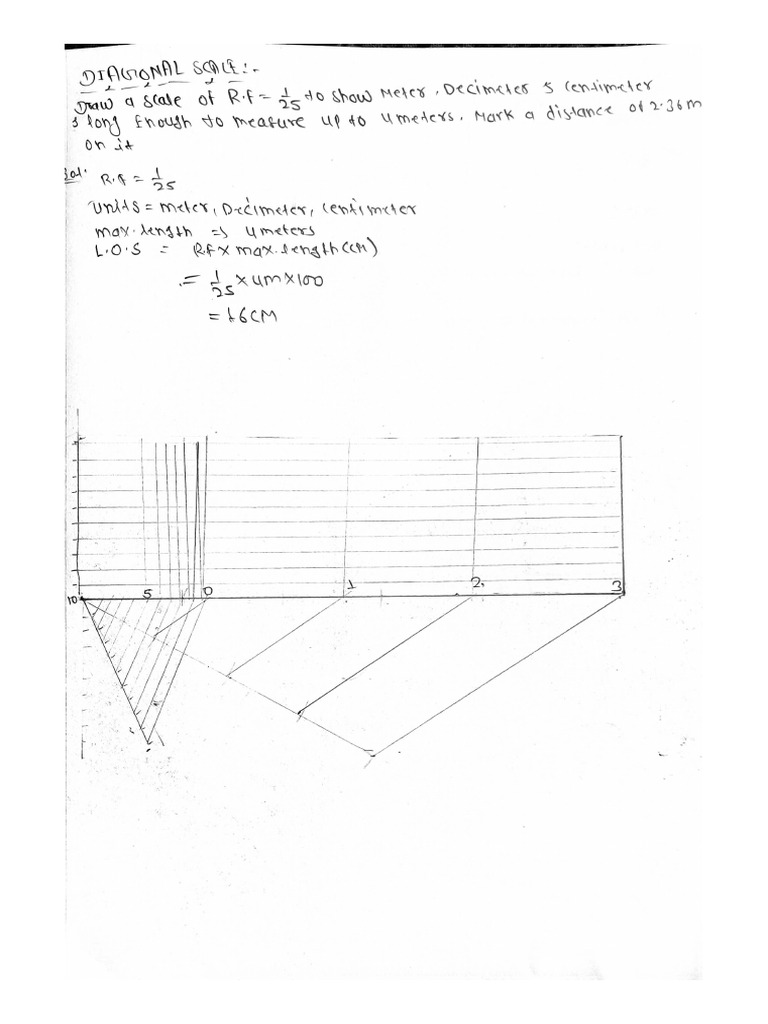 DIAGONAL SCALE:-
Draw a scale of R.F = 1/25 to show Meter, Decimeter & Centimeter
& long Enough to measure up to 4 meters. Mark a distance of 2.36m
on it
Sol. R.f = 1/25
Units = meter, Decimeter, Centimeter
max. length => 4 meters
L.O.S = R.F x max. length (CM)
= 1/25 x 4m x 100
= 16 CM
10 5 0 1 2. 3